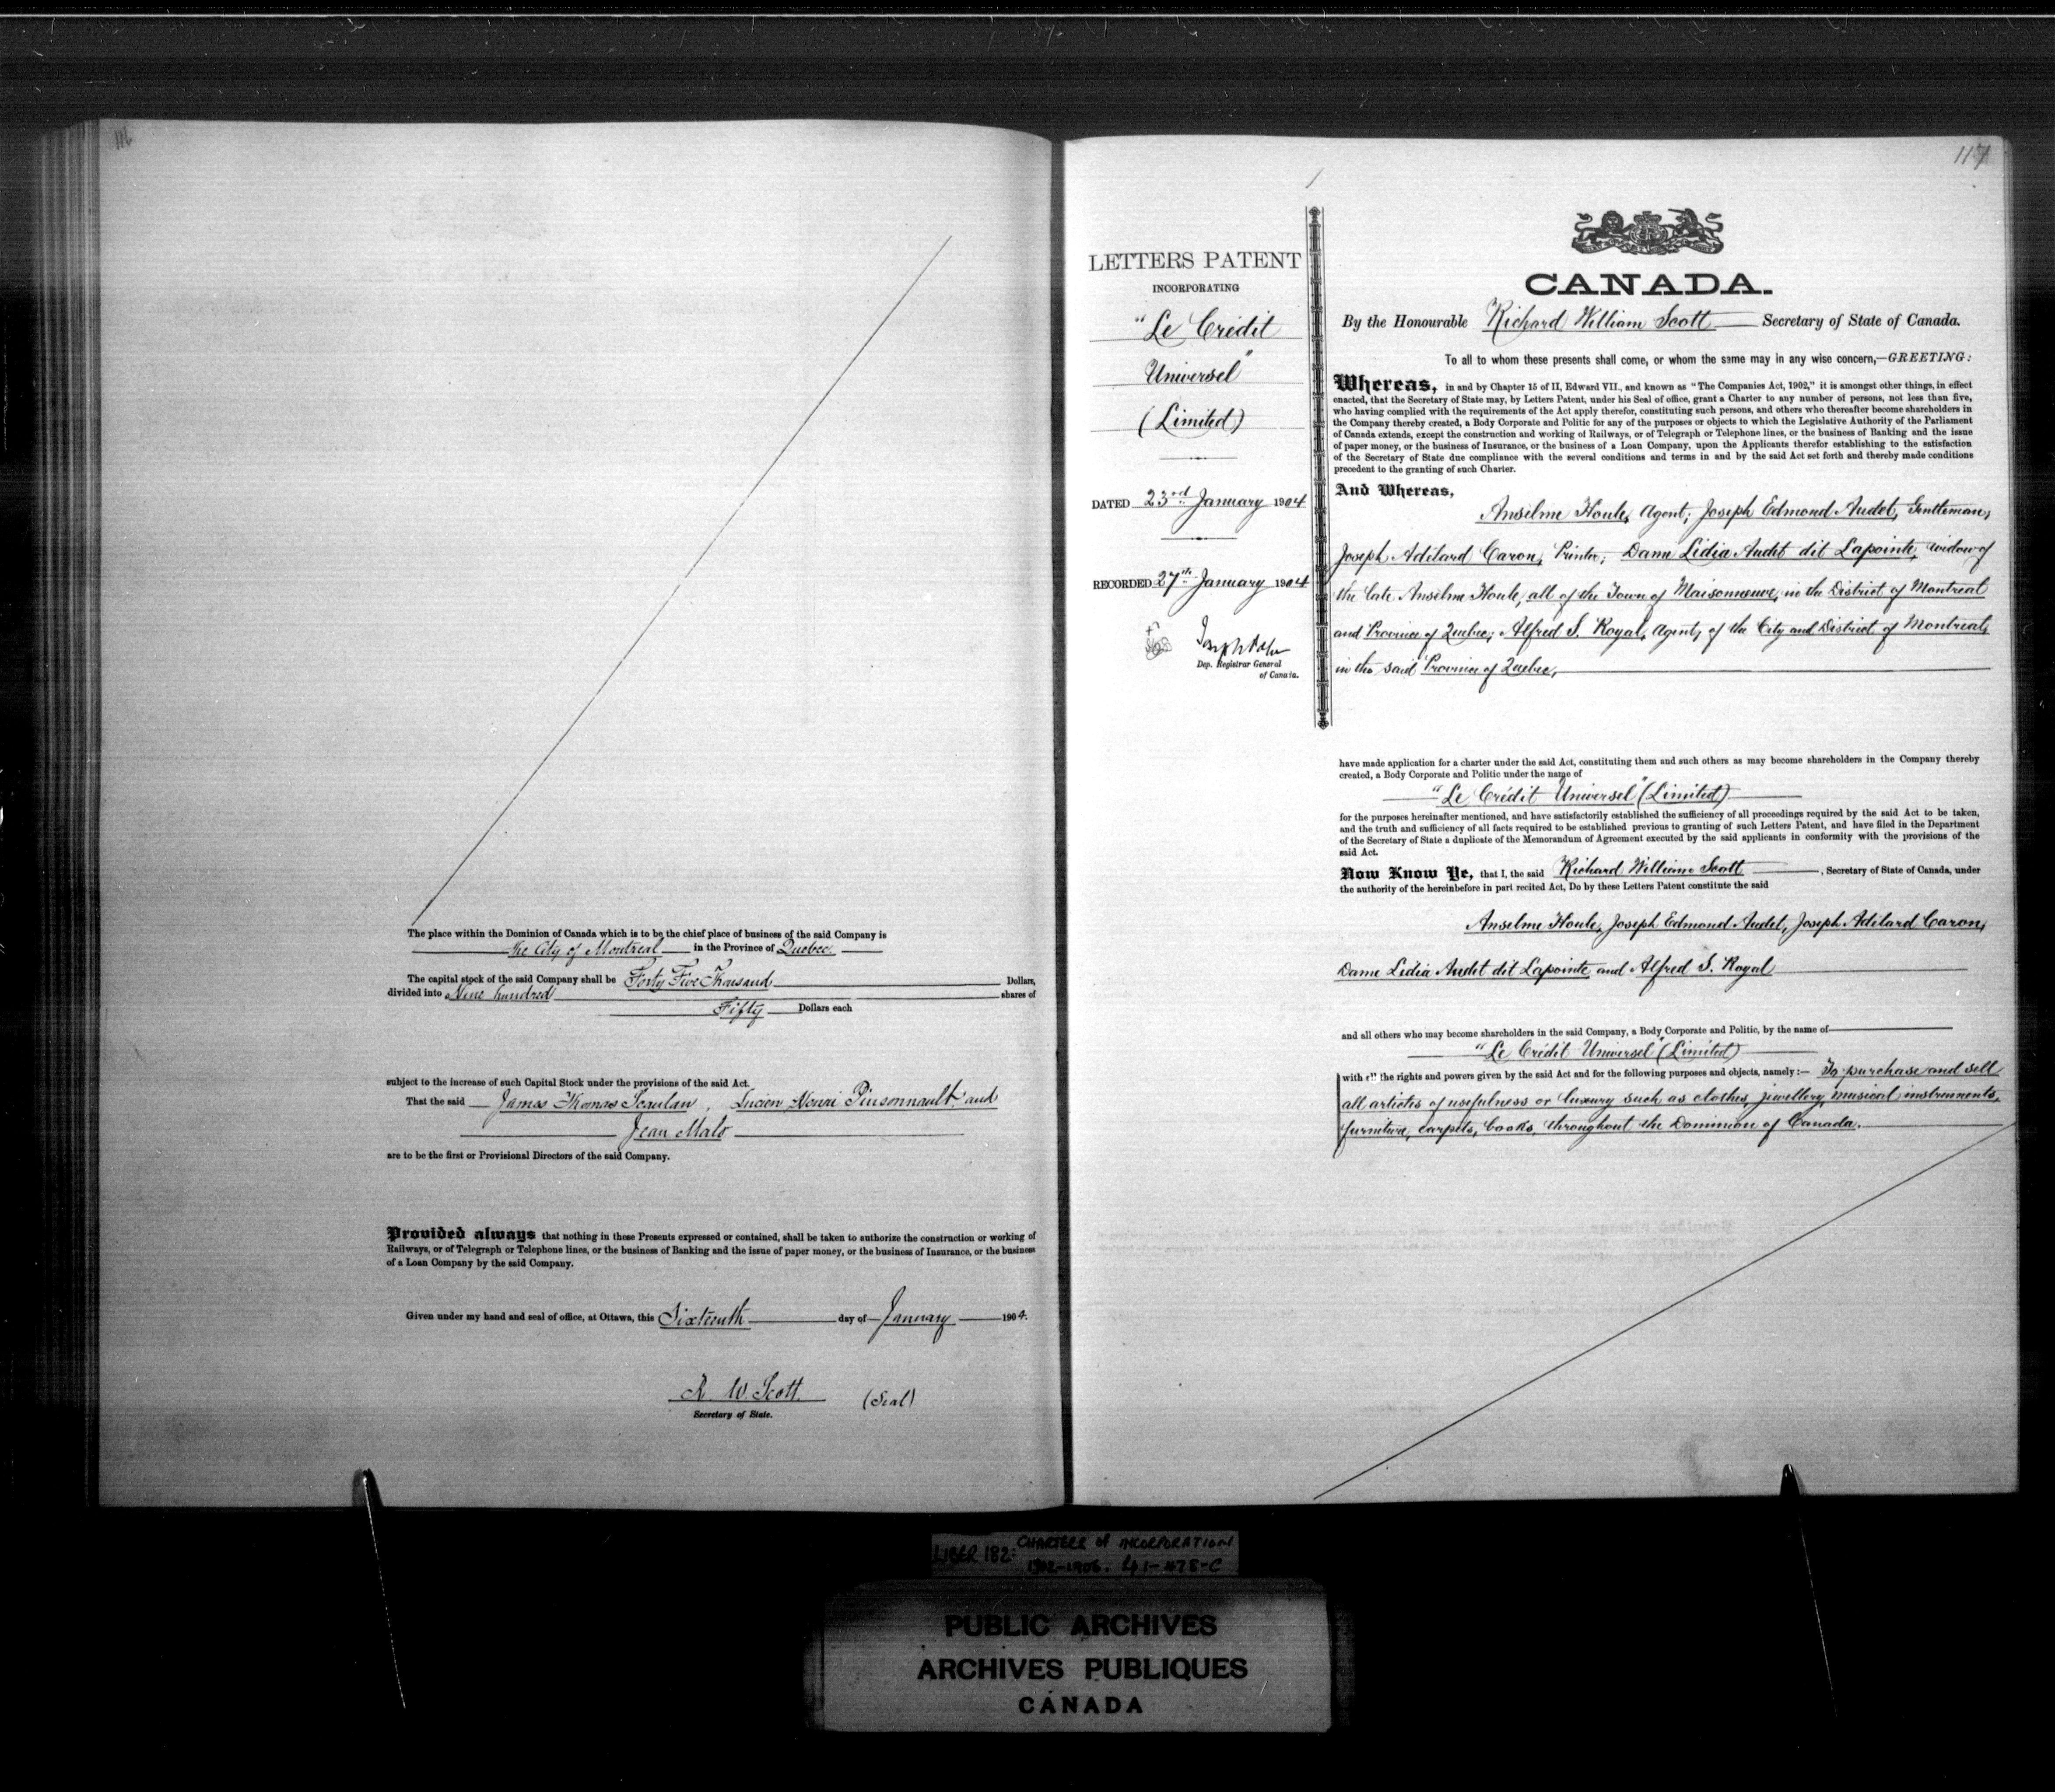 116
The place within the Dominion of Canada which is to be the chief place of business of the said Company is
the City of Montreal in the Province of Quebec.
The capital stock of the said Company shall be Forty Five Thousand Dollars,
divided into Nine hundred shares of
Fifty Dollars each
subject to the increase of such Capital Stock under the provisions of the said Act.
That the said James Thomas Scanlan, Lucien Henri Pinsonnault and
Jean Malo
are to be the first or Provisional Directors of the said Company.
Provided always that nothing in these Presents expressed or contained, shall be taken to authorize the construction or working of
Railways, or of Telegraph or Telephone lines, or the business of Banking and the issue of paper money, or the business of Insurance, or the business
of a Loan Company by the said Company.
Given under my hand and seal of office, at Ottawa, this Sixteenth day of January 1904.
R. W. Scott. (Seal)
Secretary of State.
117
LETTERS PATENT
INCORPORATING
"Le Crédit
Universel"
(Limited)
DATED 23rd January 1904
RECORDED 27th January 1904
Dep. Registrar General
of Canada.
CANADA.
By the Honourable Richard William Scott Secretary of State of Canada.
To all to whom these presents shall come, or whom the same may in any wise concern,—GREETING:
Whereas, in and by Chapter 15 of II, Edward VII., and known as "The Companies Act, 1902," it is amongst other things, in effect
enacted, that the Secretary of State may, by Letters Patent, under his Seal of office, grant a Charter to any number of persons, not less than five,
who having complied with the requirements of the Act apply therefor, constituting such persons, and others who thereafter become shareholders in
the Company thereby created, a Body Corporate and Politic for any of the purposes or objects to which the Legislative Authority of the Parliament
of Canada extends, except the construction and working of Railways, or of Telegraph or Telephone lines, or the business of Banking and the issue
of paper money, or the business of Insurance, or the business of a Loan Company, upon the Applicants therefor establishing to the satisfaction
of the Secretary of State due compliance with the several conditions and terms in and by the said Act set forth and thereby made conditions
precedent to the granting of such Charter.
And Whereas,
Anselme Houle, Agent; Joseph Edmond Audet, Gentleman;
Joseph Adélard Caron, Printer; Dame Lidia Audet dit Lapointe, widow of
the late Anselme Houle, all of the Town of Maisonneuve, in the District of Montreal
and Province of Quebec; Alfred S. Royal, Agent, of the City and District of Montreal,
in the said Province of Quebec,
have made application for a charter under the said Act, constituting them and such others as may become shareholders in the Company thereby
created, a Body Corporate and Politic under the name of
"Le Crédit Universel" (Limited)
for the purposes hereinafter mentioned, and have satisfactorily established the sufficiency of all proceedings required by the said Act to be taken,
and the truth and sufficiency of all facts required to be established previous to granting of such Letters Patent, and have filed in the Department
of the Secretary of State a duplicate of the Memorandum of Agreement executed by the said applicants in conformity with the provisions of the
said Act.
Now Know Ye, that I, the said Richard William Scott, Secretary of State of Canada, under
the authority of the hereinbefore in part recited Act, Do by these Letters Patent constitute the said
Anselme Houle, Joseph Edmond Audet, Joseph Adélard Caron,
Dame Lidia Audet dit Lapointe and Alfred S. Royal
and all others who may become shareholders in the said Company, a Body Corporate and Politic, by the name of
"Le Crédit Universel" (Limited)
with all the rights and powers given by the said Act and for the following purposes and objects, namely:— To purchase and sell
all articles of usefulness or luxury such as clothes, jewellery, musical instruments,
furniture, carpets, books, throughout the Dominion of Canada.
LIBER 182: CHARTERS OF INCORPORATION
1902-1906. 41-#78-C
PUBLIC ARCHIVES
ARCHIVES PUBLIQUES
CANADA